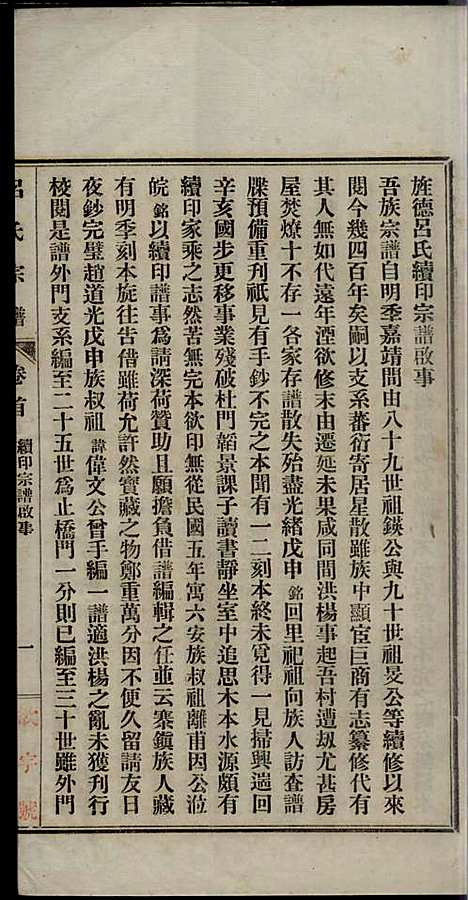 旌德呂氏續印宗譜啟事
吾族宗譜自明季嘉靖間由八十九世祖鍈公與九十世祖旻公等續修以來
閱今幾四百年矣嗣以支系蕃衍寄居星散雖族中顯宦巨商有志纂修代有
其人無如代遠年湮欲修末由遷延未果咸同間洪楊事起吾村遭刼尤甚房
屋焚燎十不存一各家存譜散失殆盡光緒戊申銘回里祀祖向族人訪查譜
牒預備重刊祇見有手鈔不完之本聞有一二刻本終未覓得一見掃興遄回
辛亥國步更移事業殘破杜門韜景課子讀書靜坐室中追思木本水源頗有
續印家乘之志然苦無完本欲印無從民國五年寓六安族叔祖離甫因公涖
皖銘以續印譜事為請深荷贊助且願擔負借譜編輯之任並云寨鎭族人藏
有明季刻本旋往吿借雖荷允許然寶藏之物鄭重萬分因不便久留請友日
夜鈔完璧趙道光戊申族叔祖諱偉文公曾手編一譜適洪楊之亂未獲刊行
校閱是譜外門支系編至二十五世爲止橋門一分則已編至三十世雖外門
呂氏宗譜
卷首
續印宗譜啟事
一
字號